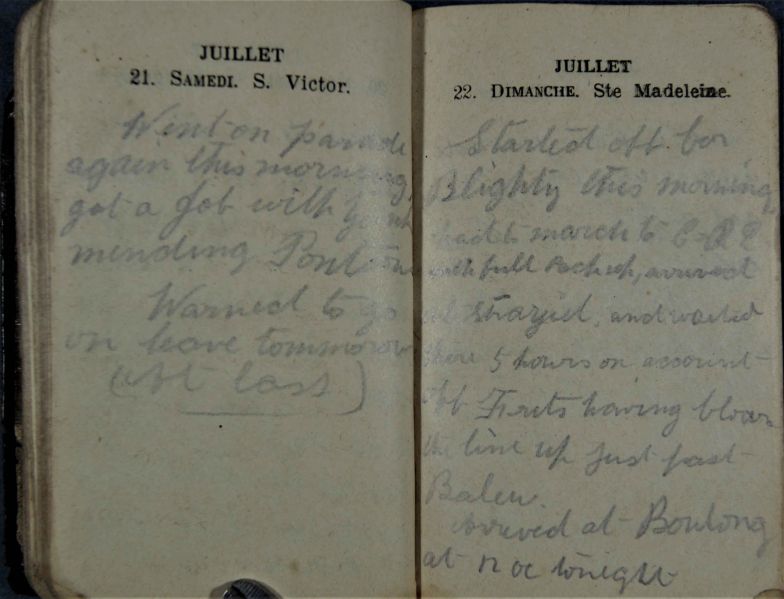 JUILLET
21. SAMEDI. S. Victor.
Went on parade
again this morning,
got a job with
mending Pontoon
Warned to go
on leave tommorow
(At last)
JUILLET
22. DIMANCHE. Ste Madeleine.
Started off for
Blighty this morning
had to march to
with full Pack up, arrived
at and waited
there 5 hours on account
off Frits having blown
the line up just past
Arrived at Boulong
at tonight